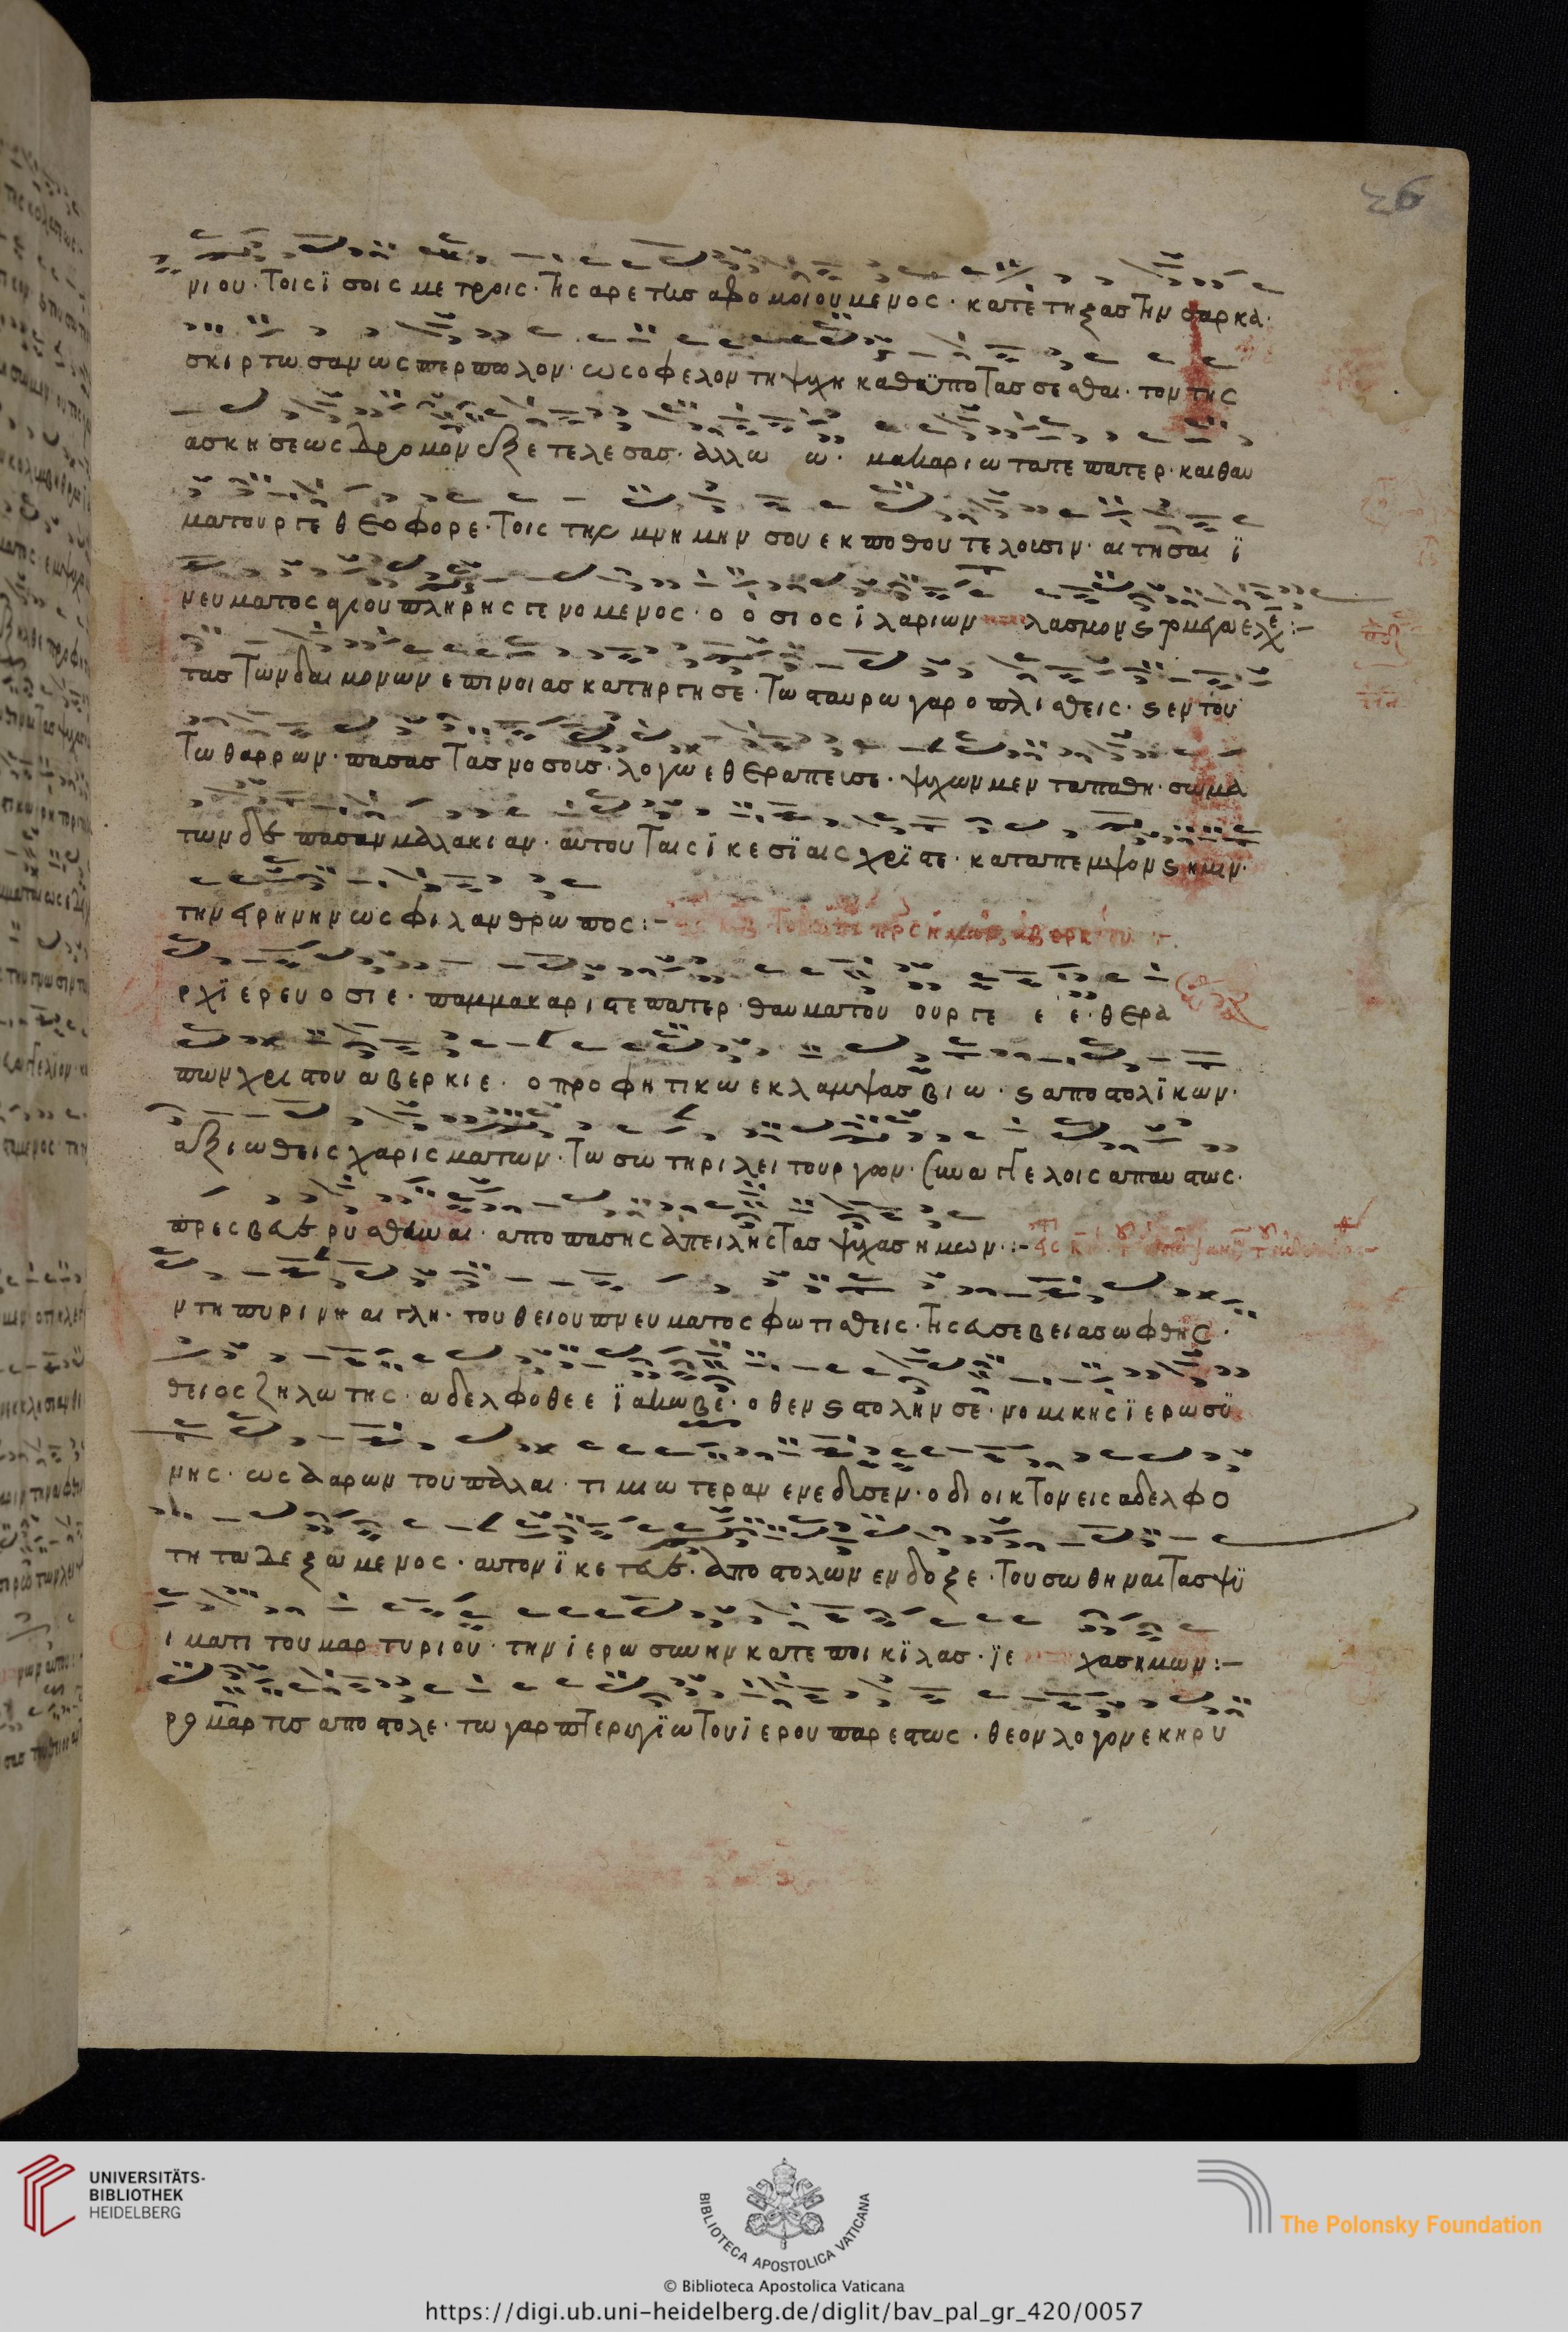 26
νιου · τοις ϊσοις μετροις · της αρετης αφομοιουμενος · κατετηξας την σαρκα ·
σκιρτωσαν ωσπερ πωλον · ως οφελον τη ψυχη καθϋποτασσεσθαι · τον της
ασκησεως δρομον εξετελεσας · αλλω ω · μακαριωτατε πατερ · και θαυ
ματουργε θεοφορε · τοις την μνημην σου εκ ποθου τελουσιν · αιτησαι ϊ
νευματος αγιου πληρης γενομενος · ο οσιος ϊλαριων λασμον ϗ μεγα ελε :–
τας των δαιμονων επινοιας κατηργησε · τω σταυρω γαρ οπλισθεις · ϗ εν του
τω θαρρων · πασας τας νοσους · λογω εθεραπευσε · ψυχων μεν τα παθη · σωμα
των δε πασαν μαλακιαν · αυτου ταις ϊκεσϊαις χριστε · καταπεμψον ϗ ημιν ·
την ειρηνην ως φιλανθρωπος :–
ρχϊερευ οσιε · παμμακαριστε πατερ · θαυματου ουργε ε ε · θερα
πων χριστου αβερκιε · ο προφητικω εκλαμψας βιω · ϗ αποστολϊκων ·
αξιωθεις χαρισματων · τω σωτηρι λειτουργων · συν αγγελοις απαυστως ·
πρεσβευε ρυσθηναι · απο πασης απειλης τας ψυχας ημων :–
ν τη πυρινη αιγλη · του θειου πνευματος φωτισθεις · της ευσεβειας ωφθης ·
θειος ζηλωτης · αδελφοθεε ϊακωβε · οθεν ϗ στολην σε · νομικης ϊερωσυ
νης · ως ααρων του παλαι · τιμιωτεραν ενεδυσεν · ο δι οικτον εις αδελφο
τητα δεξαμενος · αυτον ϊκετευε · αποστολων ενδοξε · του σωθηναι τας ψϋ
ιματι του μαρτυριου · την ϊερωσυνην κατεποικϊλας · ϊε χας ημων :–
ρομαρτυς αποστολε · τω γαρ πτερυγϊω του ϊερου παρεστως · θεον λογον εκηρυ
UNIVERSITÄTS-
BIBLIOTHEK
HEIDELBERG
BIBLIOTECA APOSTOLICA VATICANA
The Polonsky Foundation
© Biblioteca Apostolica Vaticana
https://digi.ub.uni-heidelberg.de/diglit/bav_pal_gr_420/0057